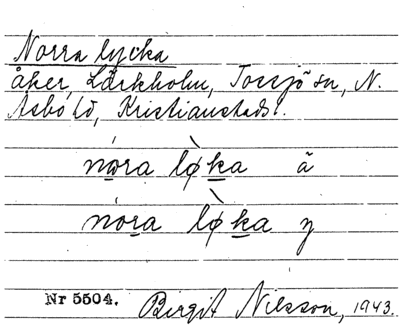 Norra lycka
åker, Lärkholm, Tossjö sn, N.
Åsbo hd, Kristianstads l.
nó̱ra lø̀ḵa ã
nóṟa lø̀ḵa y
Nr 5504. Birgit Nilsson, 1943.